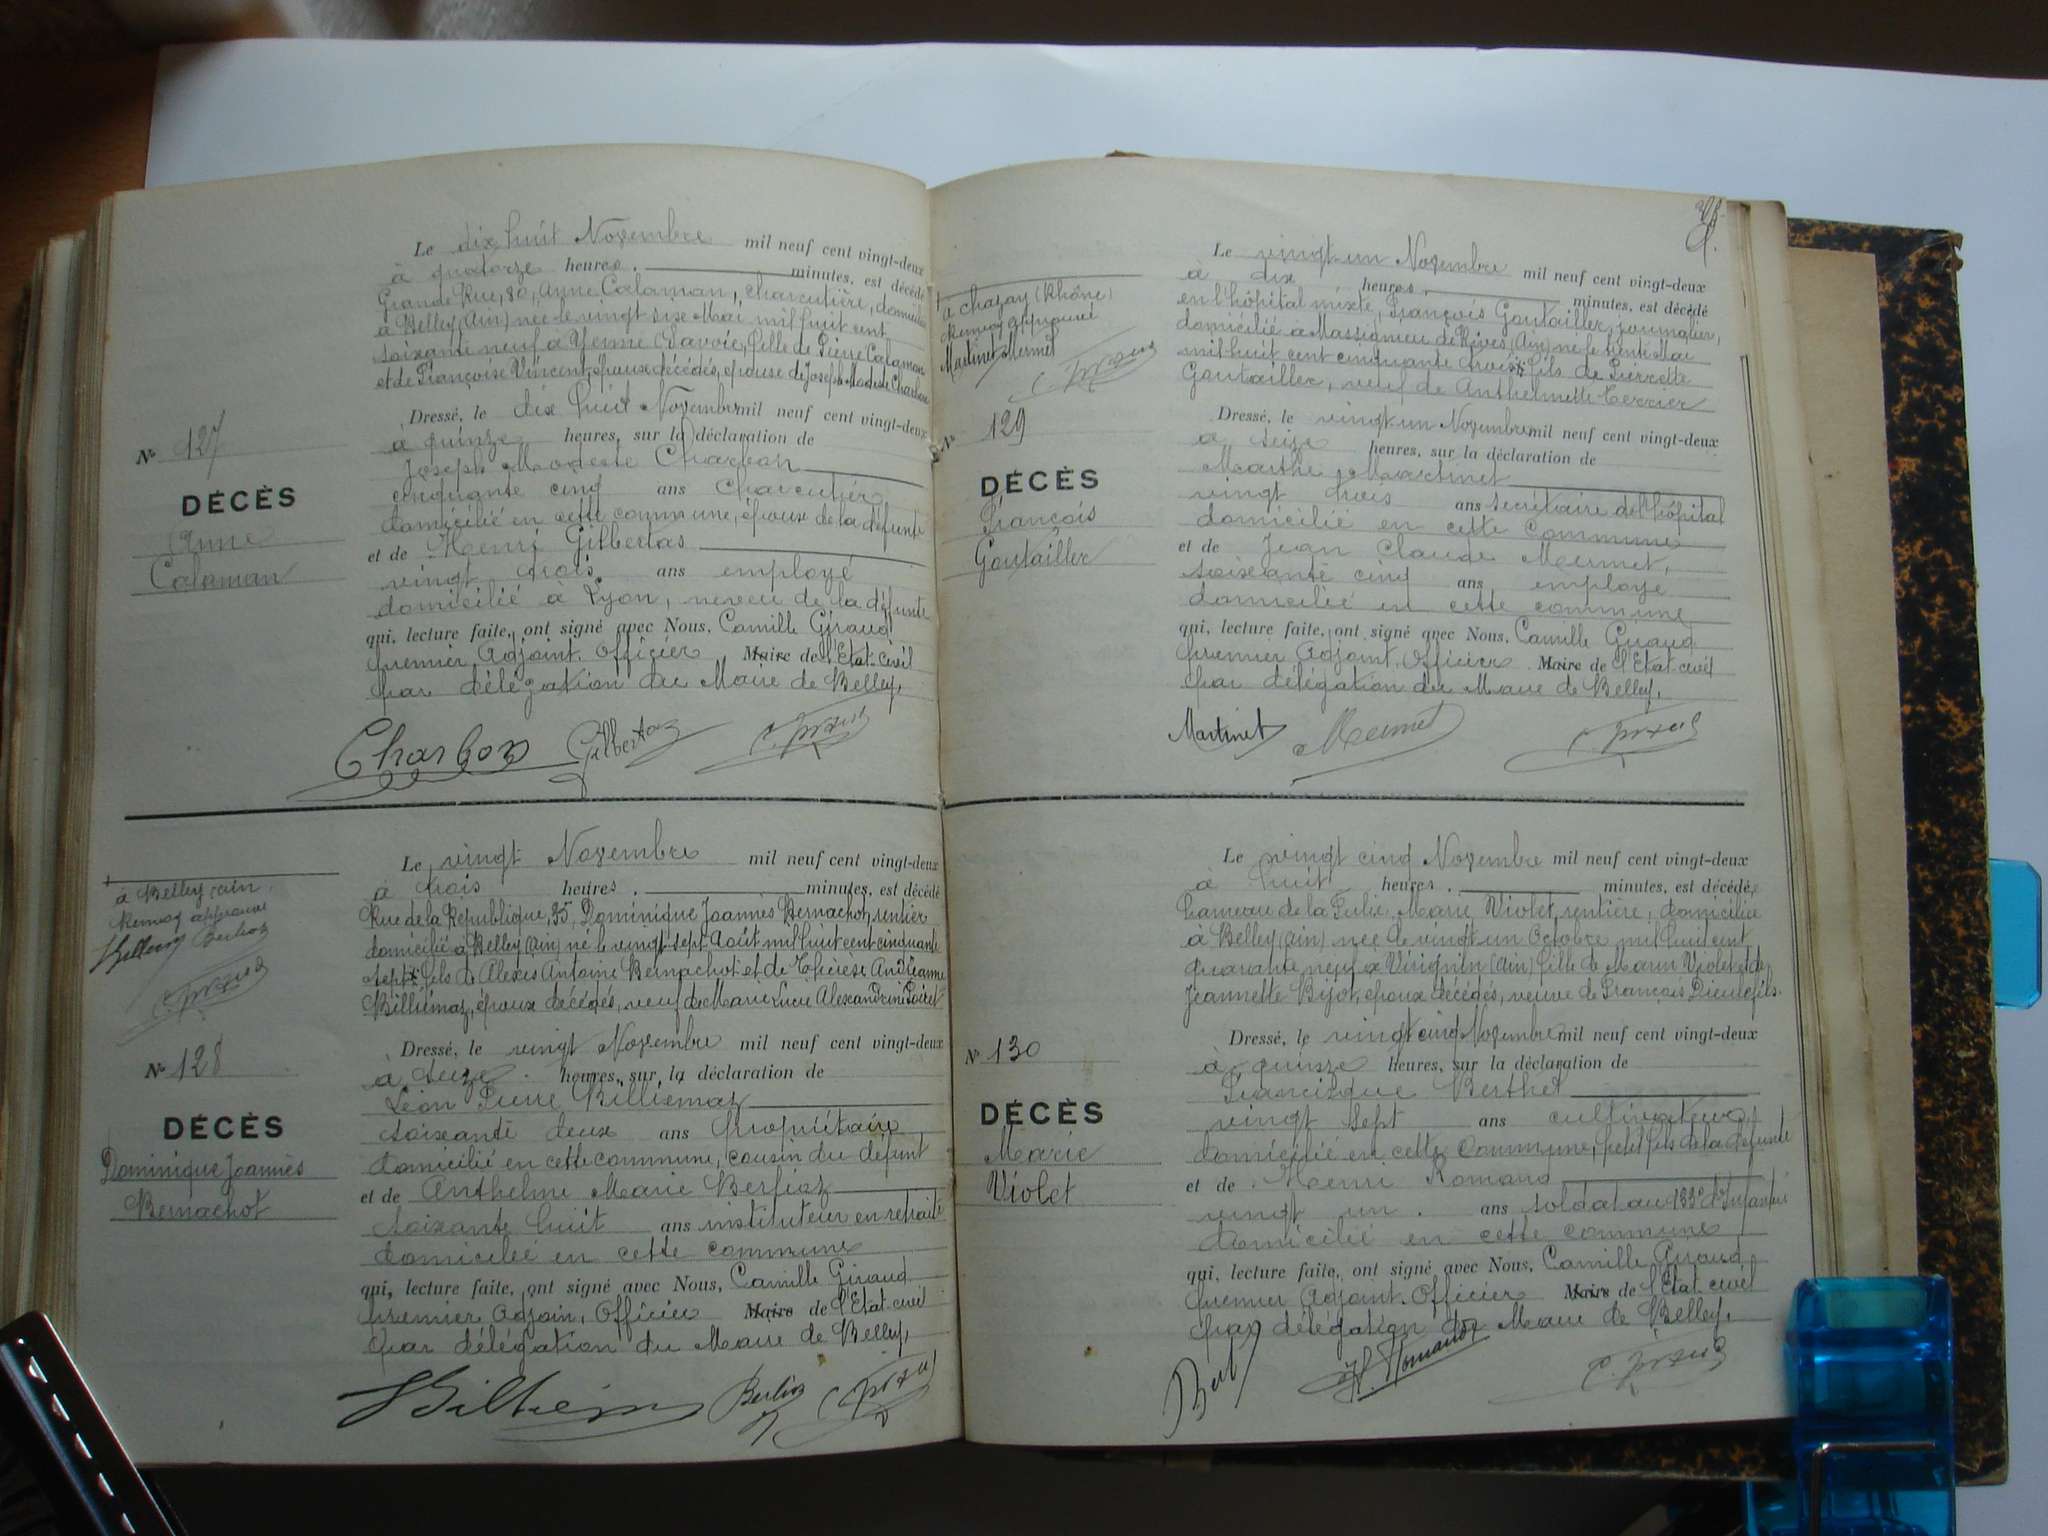 Le dix huit Novembre mil neuf cent vingt-deux
à quatorze heures, minutes, est décédé
Grande Rue, 80, Anne Calaman, charcutière, domiciliée
à Belley (Ain) née le vingt six Mai mil huit cent
soixante neuf à Yenne (Savoie) fille de Pierre Calaman
et de Françoise Vincent, époux décédés, épouse de Joseph Modeste Charbon
Nº 127
DÉCÈS
Anne
Calaman
Dressé, le dix huit Novembre mil neuf cent vingt-deux
à quinze heures, sur la déclaration de
Joseph Modeste Charbon
cinquante cinq ans Charcutier
domicilié en cette commune, époux de la défunte
et de Henri Gilbertas
vingt trois ans employé
domicilié à Lyon, neveu de la défunte
qui, lecture faite, ont signé avec Nous, Camille Giraud
premier Adjoint. Officier Maire de l'Etat-civil
par délégation du Maire de Belley,
Charbon Gilbertas C. Giraud
Le vingt Novembre mil neuf cent vingt-deux
à trois heures, minutes, est décédé
Rue de la République, 35, Dominique Joannès Bernachot, rentier
domicilié à Belley (Ain) né le vingt sept Août mil huit cent cinquante
sept fils de Alexis Antoine Bernachot et de Thérèse Andréanne
Billiémaz, époux décédés, veuf de Marie Lucie Alexandrine
à Belley, ain
Renvoi approuvé
Billiemaz Berlioz
C. Giraud
Nº 128
DÉCÈS
Dominique Joannès
Bernachot
Dressé, le vingt Novembre mil neuf cent vingt-deux
à seize heures, sur la déclaration de
Léon Pierre Billiemaz
soixante deux ans Propriétaire
domicilié en cette commune, cousin du défunt
et de Anthelme Marie Berlioz
soixante huit ans instituteur en retraite
domicilié en cette commune
qui, lecture faite, ont signé avec Nous, Camille Giraud
premier Adjoin, Officier Maire de l'Etat-civil
par délégation du Maire de Belley,
Billiem Berlioz C. Giraud
Le vingt un Novembre mil neuf cent vingt-deux
à dix heures, minutes, est décédé
en l'hôpital mixte, François Goutailler, journalier,
domicilié à Massignieu de Rives (Ain) né le trente Mai
mil huit cent cinquante trois fils de Pierrette
Goutailler, veuf de Anthelmette Terrier
à Chazay (Rhône)
Renvoi approuvé
Martinet Mermet
C. Giraud
Nº 129
DÉCÈS
François
Goutailler
Dressé, le vingt un Novembre mil neuf cent vingt-deux
à seize heures, sur la déclaration de
Marthe Martinet
vingt trois ans secrétaire de l'hôpital
domicilié en cette Commune
et de Jean Claude Mermet,
soixante cinq ans employé
domicilié en cette commune
qui, lecture faite, ont signé avec Nous, Camille Giraud
premier Adjoint. Officier Maire de l'Etat-civil
par délégation du Maire de Belley,
Martinet Mermet C. Giraud
Le vingt cinq Novembre mil neuf cent vingt-deux
à huit heures, minutes, est décédée
hameau de la Marie Violet, rentière, domiciliée
à Belley (Ain) née le vingt un Octobre mil huit cent
quarante neuf à Virignin (Ain) fille de Marin Violet et de
Jeannette Bijot, époux décédés, veuve de François Dieulefils.
Nº 130
DÉCÈS
Marie
Violet
Dressé, le vingt cinq Novembre mil neuf cent vingt-deux
à quinze heures, sur la déclaration de
Francisque Berthet
vingt sept ans cultivateur
domicilié en cette Commune, petit fils de la défunte
et de Henri Romand
vingt un ans soldat au 133e d'Infanterie
domicilié en cette commune
qui, lecture faite, ont signé avec Nous, Camille Giraud
premier Adjoint. Officier Maire de l'Etat civil
par délégation du Maire de Belley,
H. Romand C. Giraud